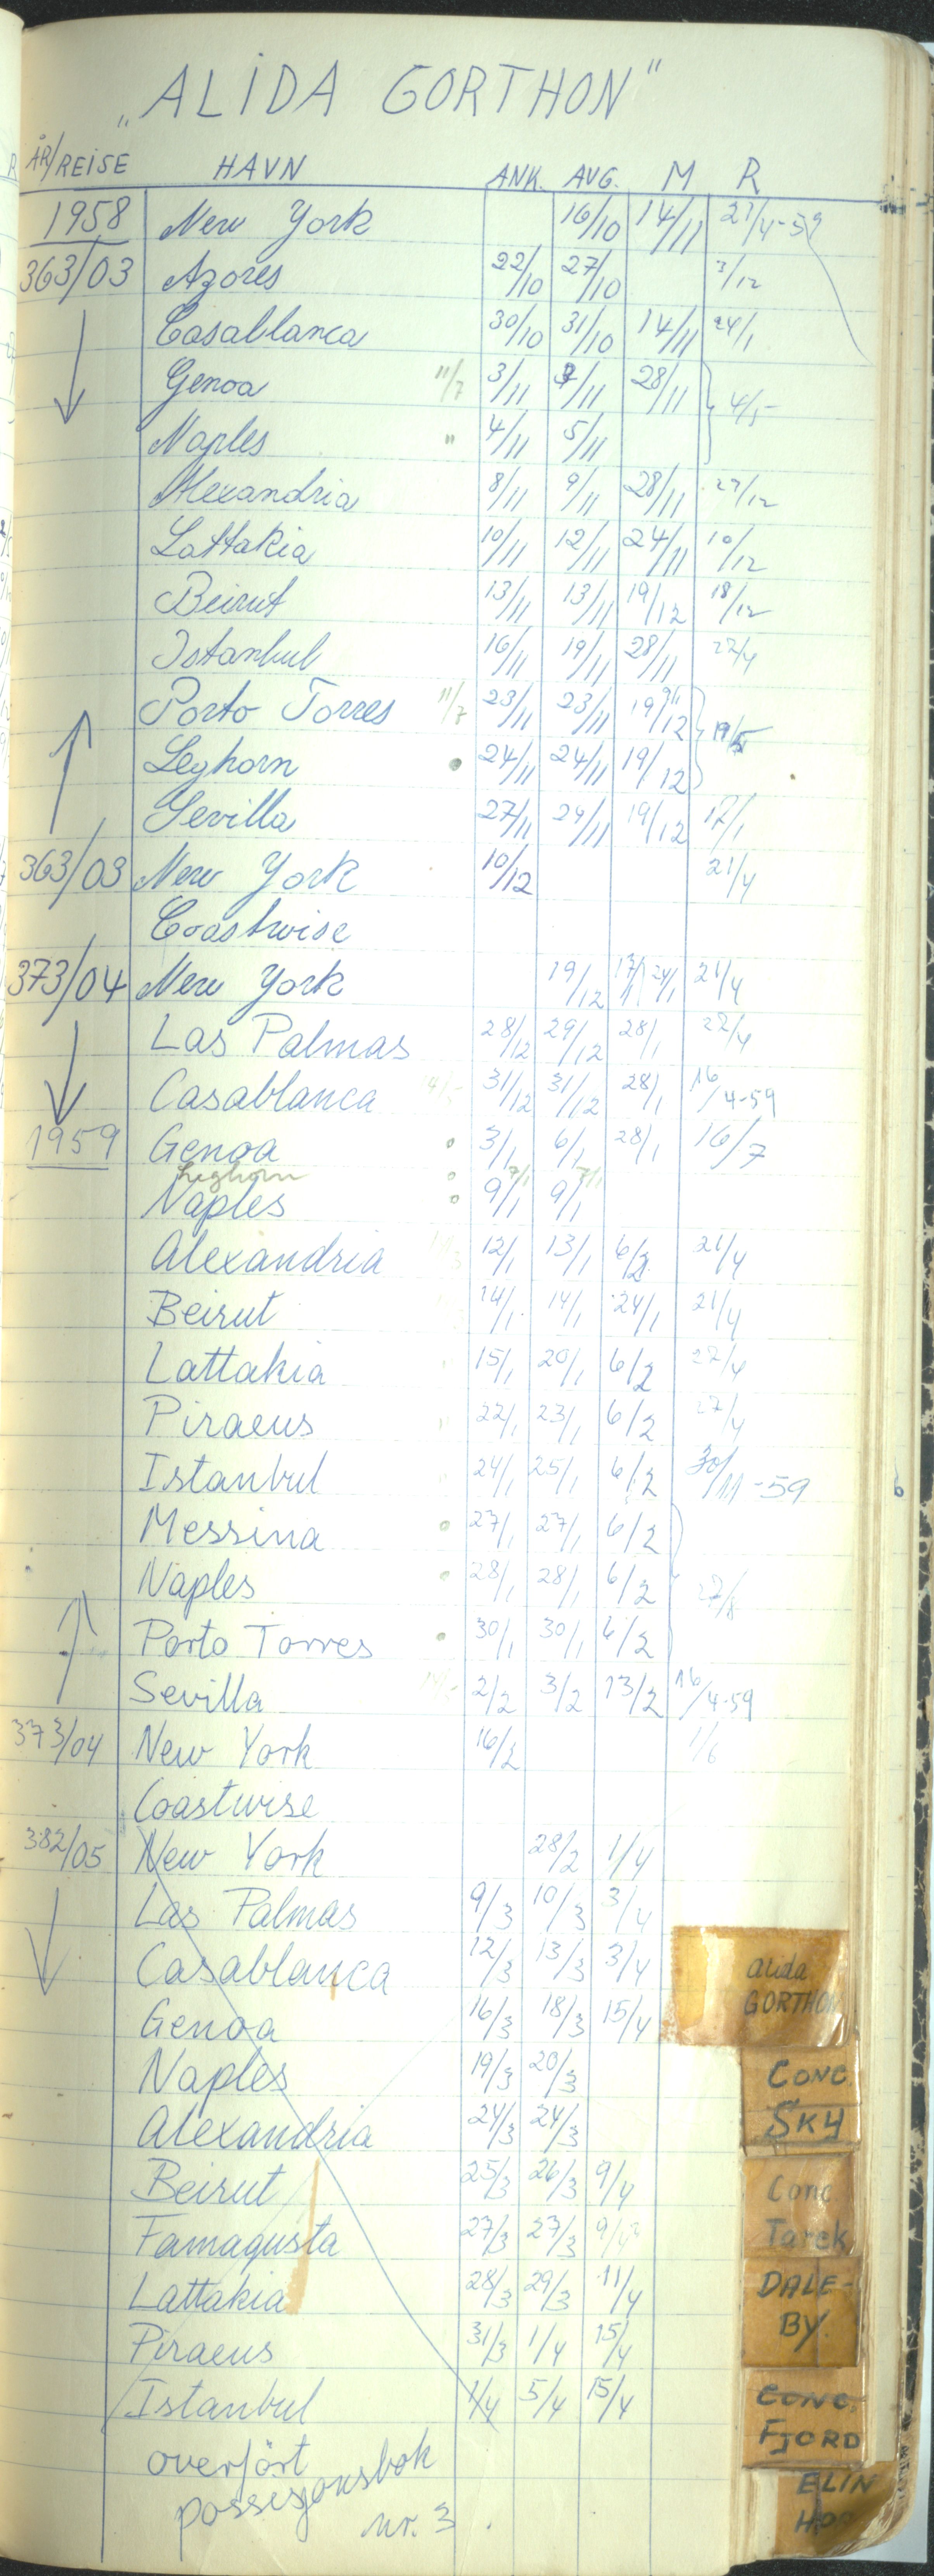 „ALIDA GORTHON"
ÅR/REISE HAVN ANK. AVG. M R
1958 New York 16/10 14/11 21/4-59
363/03 Azores 22/10 27/10 3/12
Casablanca 30/10 31/10 14/11 24/1
Genoa 11/7 3/11 /11 28/11 4/5
Naples " 4/11 5/11
Alexandria 8/11 9/11 28/11 27/12
Lattakia 10/11 12/11 24/11 10/12
Beirut 13/11 13/11 19/12 18/12
Istanbul 16/11 19/11 28/11 22/4
Porto Torres 11/7 23/11 23/11 19/12 19/5
Leghorn 24/11 24/11 19/12
Sevilla 27/11 24/11 19/12 12/1
363/03 New York 10/12 21/4
Coastwise
373/04 New York 19/12 21/4
Las Palmas 28/12 29/12 28/1 22/4
Casablanca 31/12 31/12 28/1 16/4-59
1959 Genoa 3/1 6/1 28/1 16/7
Leghorn 7/1 7/1
Naples 9/1 9/1
Alexandria 12/1 13/1 6/2 21/4
Beirut 14/1 14/1 24/1 21/4
Lattakia 15/1 20/1 6/2 22/4
Piraeus 22/1 23/1 6/2 27/4
Istanbul 24/1 25/1 6/2 30/11-59
Messina 27/1 27/1 6/2
Naples 28/1 28/1 6/2
Porto Torres 30/1 30/1 6/2
Sevilla 2/2 3/2 13/2 16/4-59
373/04 New York 16/2 1/6
Coastwise
382/05 New York 28/2 1/4
Las Palmas 9/3 10/3 3/4
Casablanca 12/3 13/3 3/4
Genoa 16/3 18/3 15/4
Naples 19/3 20/3
Alexandria 24/3 24/3
Beirut 25/3 26/3 9/4
Famagusta 27/3 27/3 9/4
Lattakia 28/3 29/3 11/4
Piraeus 31/3 1/4 15/4
Istanbul 1/4 5/4 15/4
overført
possisjonsbok
nr. 3
Alida
GORTHON
CONC.
SKY
Conc
Tarek
DALE-
BY.
CONC.
FJORD
ELIN